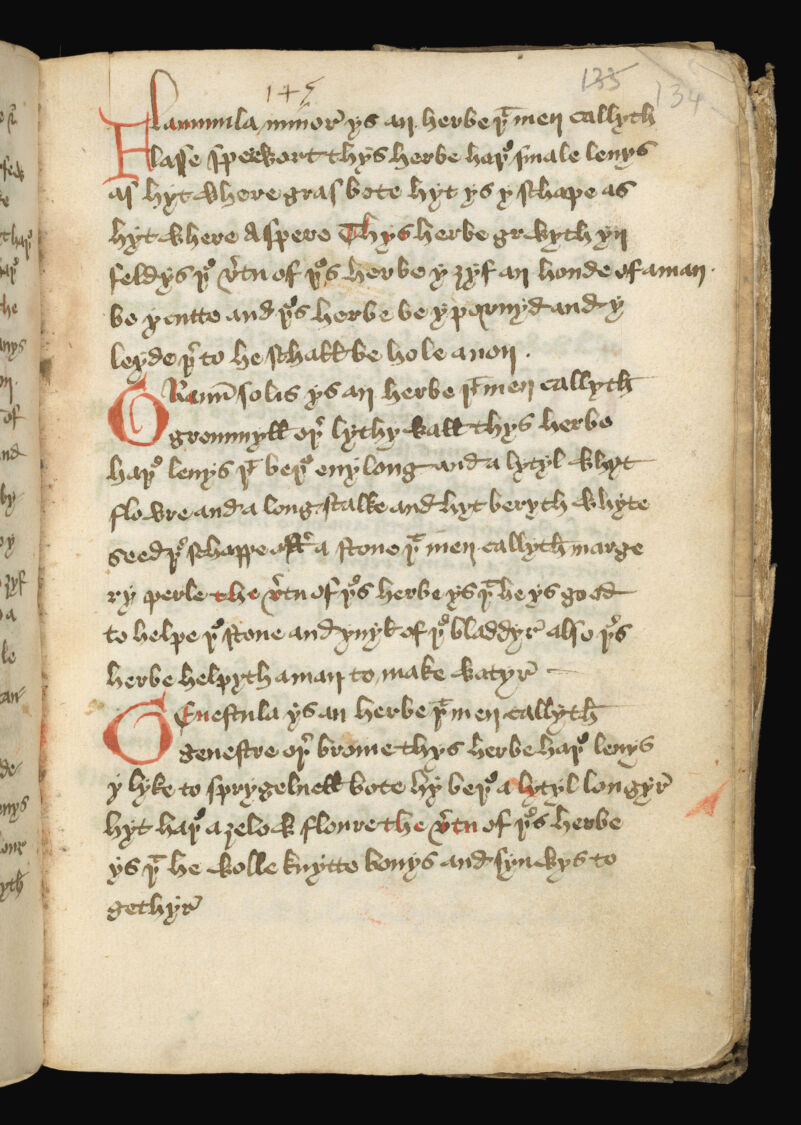 145
135 134
Flammula minor ys an herbe þt men callyth
lasse sperwort thys herbe haþe smale levys
as hyt where gras bote hyt ys y schape as
hyt where A spere Thys herbe growyth yn
feldys þe vertu of þys herbe y zyf an honde of a man
be y cutte and þys herbe be y pownyd and y
leyde þer to he schall be hole anon
Granū solis ys an herbe þt men callyth
grommyll oþer lythy wall thys herbe
haþe levys þt beþe evy long and a lytyl whyt
flowre and a long stalke and hyt beryth whyte
seed þe schappe aftr a stone þt men callyth marge
ry perle the vertu of þys herbe ys þt he ys good
to helpe þe stone and ynyl of þe bladdyr also þys
herbe helpyth a man to make watyr
Genestula ys an herbe þt men callyth
genestre oþer brome thys herbe haþe levys
y lyke to sprygelnell bote hy beþe a lytyl longyr
hyt haþe a zelow floure the vertu of þys herbe
ys þt he wolle knytte bonys and synwys to
gethyr